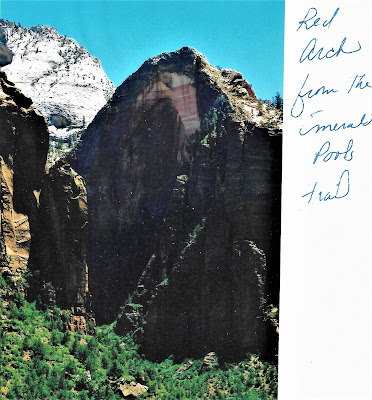 Red
Arch
from the
imerald
Pools
trail